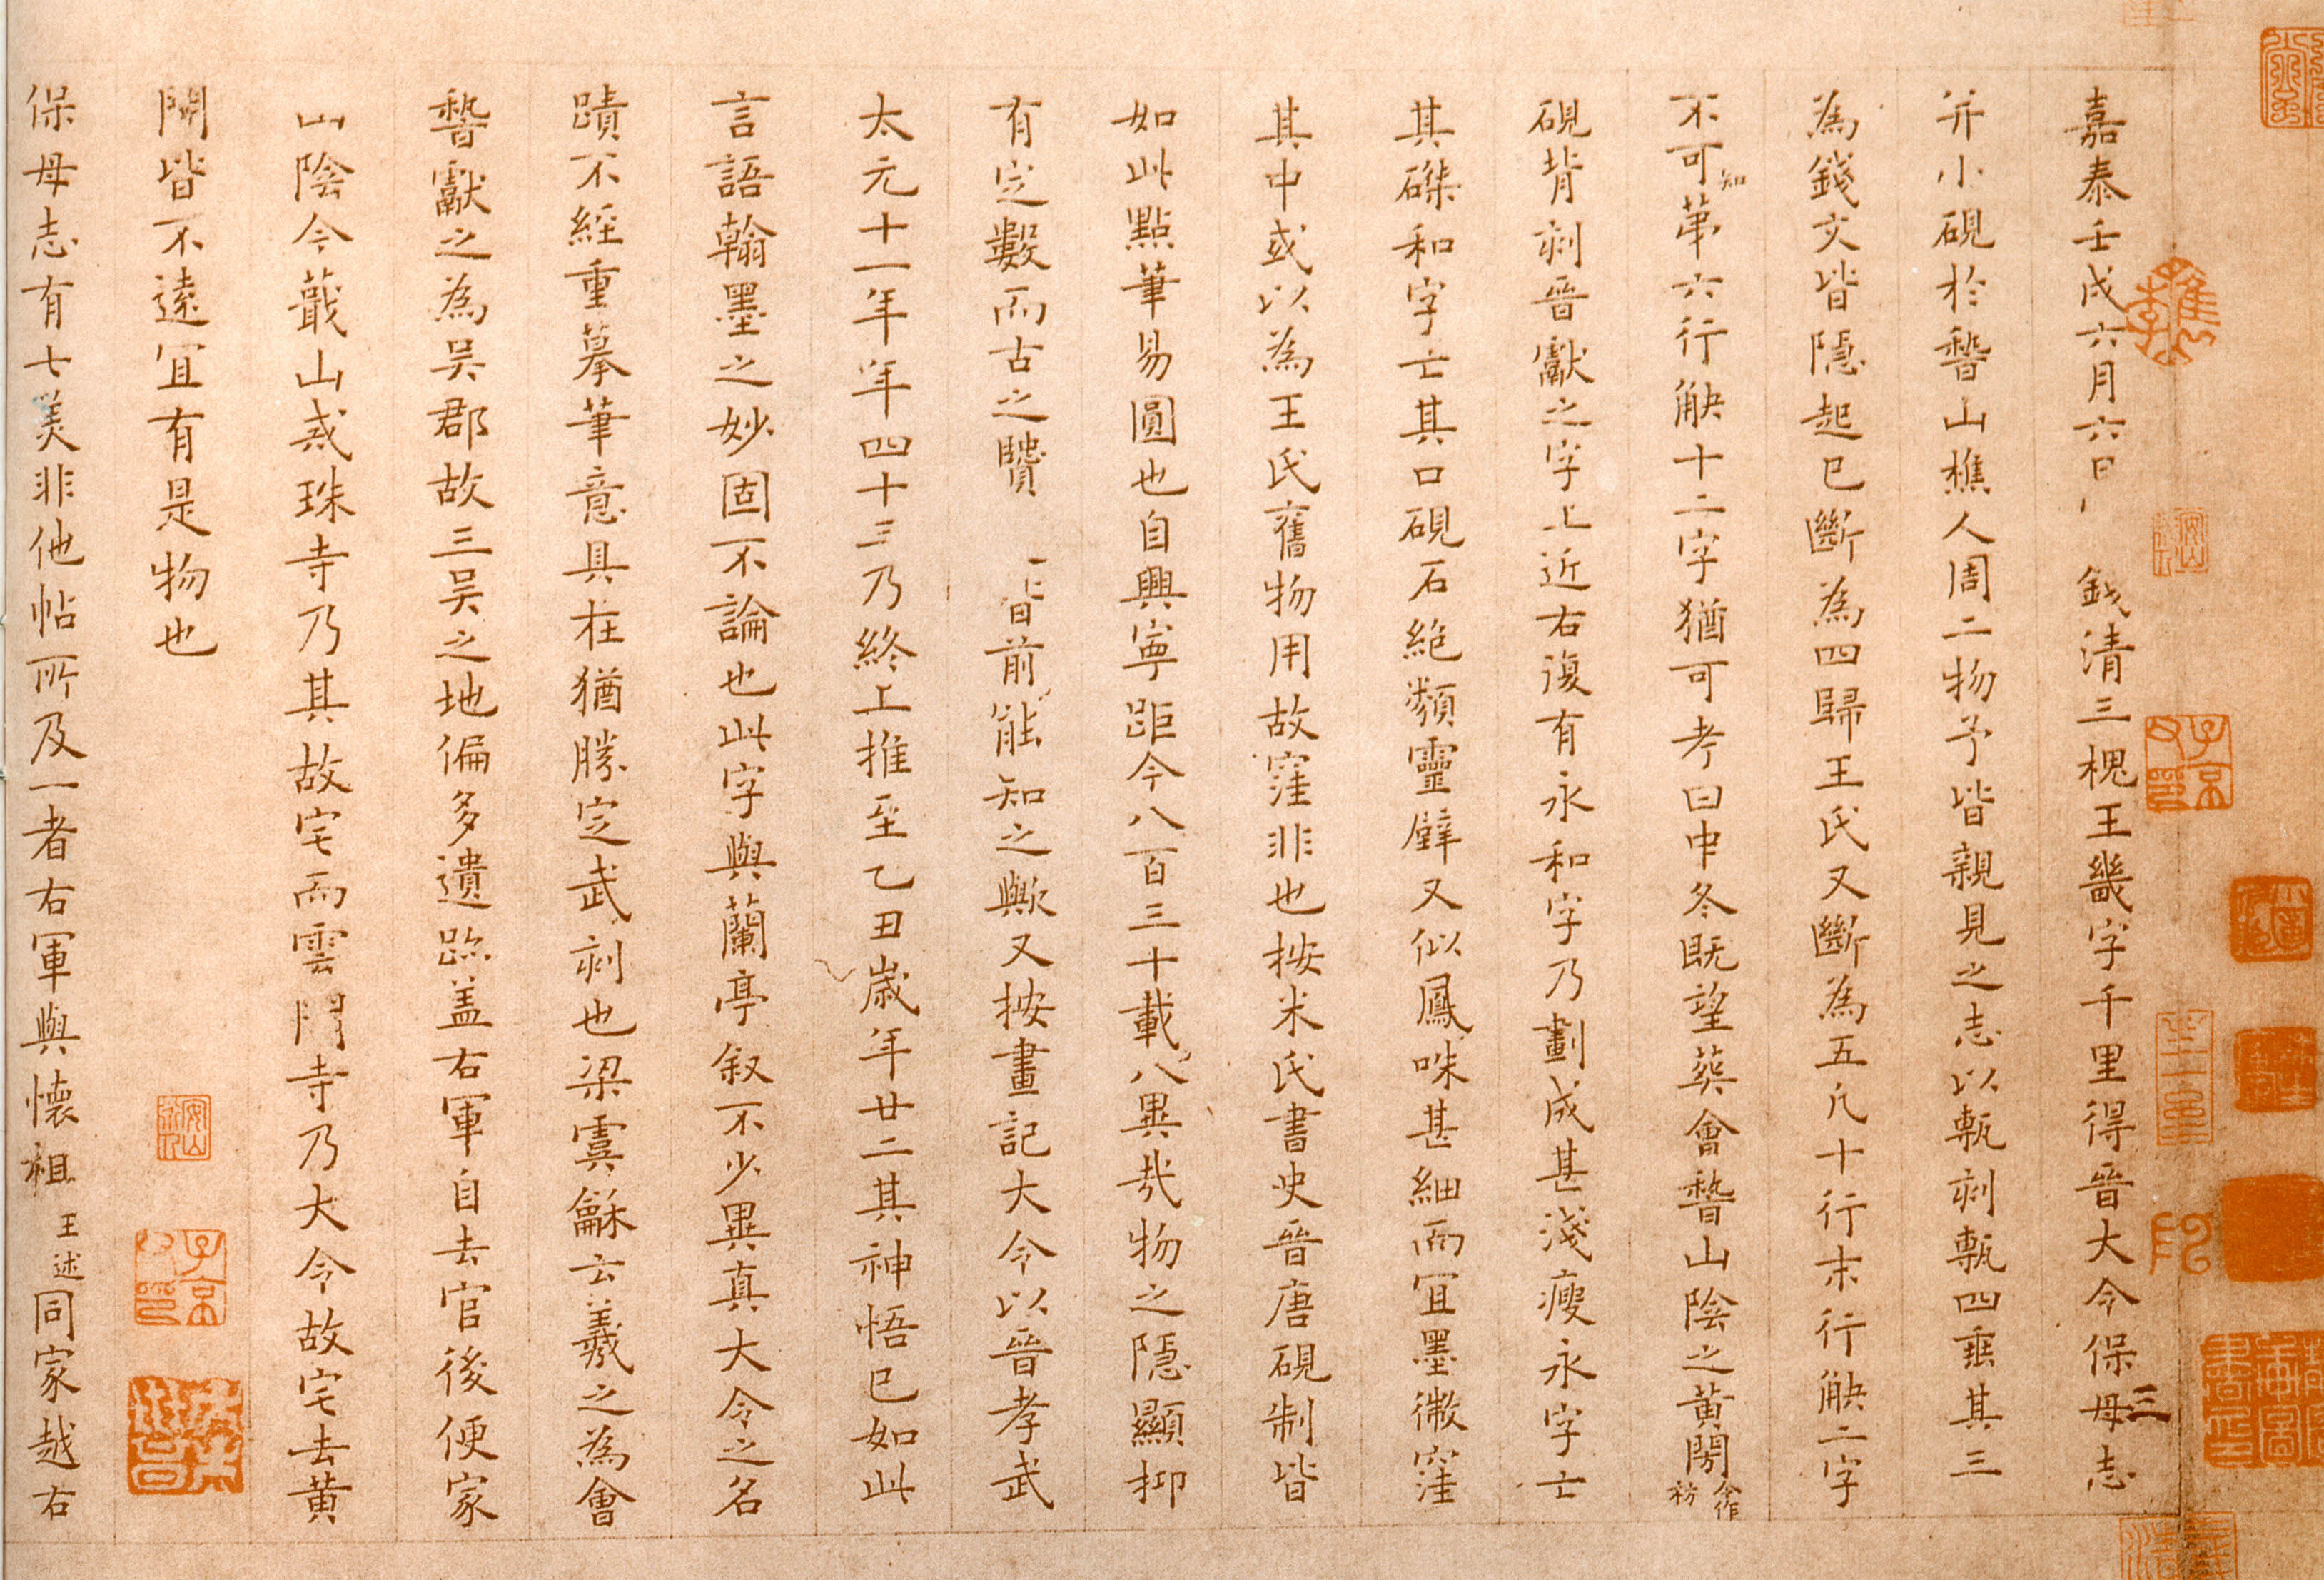 嘉泰壬戌六月六日錢清三槐王畿字千里得晉大令保母志
三
并小硯於稽山樵人周二物予皆親見之志以甎刻甎四垂其三
為錢文皆隱起已斷為四歸王氏又斷為五凡十行末行缺二字
不可知第六行缺十二字猶可考曰中冬既望葬會稽山陰之黃閍合作祊
硯背刻晉獻之字上近右復有永和字乃劃成甚淺瘦永字亡
其磔和字亡其口硯石絶類靈壁又似鳳咮甚細而宜墨微窪
其中或以為王氏舊物用故窪非也按米氏書史晉唐硯制皆
如此點筆易圓也自興寧距今八百三十載八異哉物之隱顯抑
有定數而古之賢皆前能知之歟又按畫記大令以晉孝武
太元十一年年四十三乃終上推至乙丑歲年廿二其神悟已如此
言語翰墨之妙固不論也此字與蘭亭叙不少異真大令之名
蹟不經重摹筆意具在猶勝定武刻也梁虞龢云羲之為會
稽獻之為吳郡故三吳之地偏多遺跡盖右軍自去官後便家
山陰今蕺山戒珠寺乃其故宅而雲門寺乃大令故宅去黃
閍皆不遠宜有是物也
保母志有七美非他帖所及一者右軍與懷祖王述同家越右